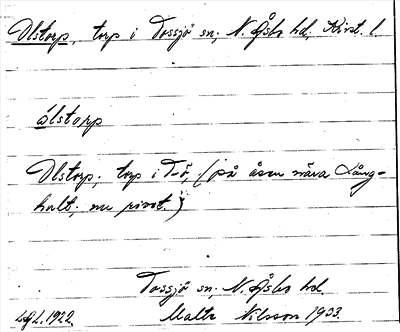 Ulstorp, torp i Tossjö sn; N. Åsbo hd, Krist. l.
ùlstorp
Ulstorp, torp i T-ö, (på åsen nära Lång-
hult, nu rivet.)
Tossjö sn; N. Åsbo hd
LAL. 1922. Malte Nilsson 1933.